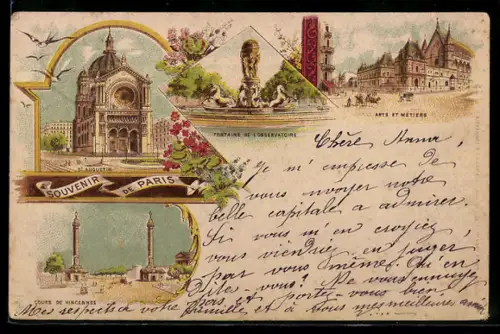 ST AUGUSTIN
FONTAINE DE L'OBSERVATOIRE
ARTS ET METIERS
SOUVENIR DE PARIS
COURS DE VINCENNES
Chère Anna,
Je m'empresse de
vous envoyer notre
belle capitale a admirer.
Si vous m'en croyiez,
vous viendriez en juger
par vous même. Qu'en
dites-vous? Ne vous ennuyez
pas et portez-vous bien.
Mes respects à votre famille et à vous mes meilleures